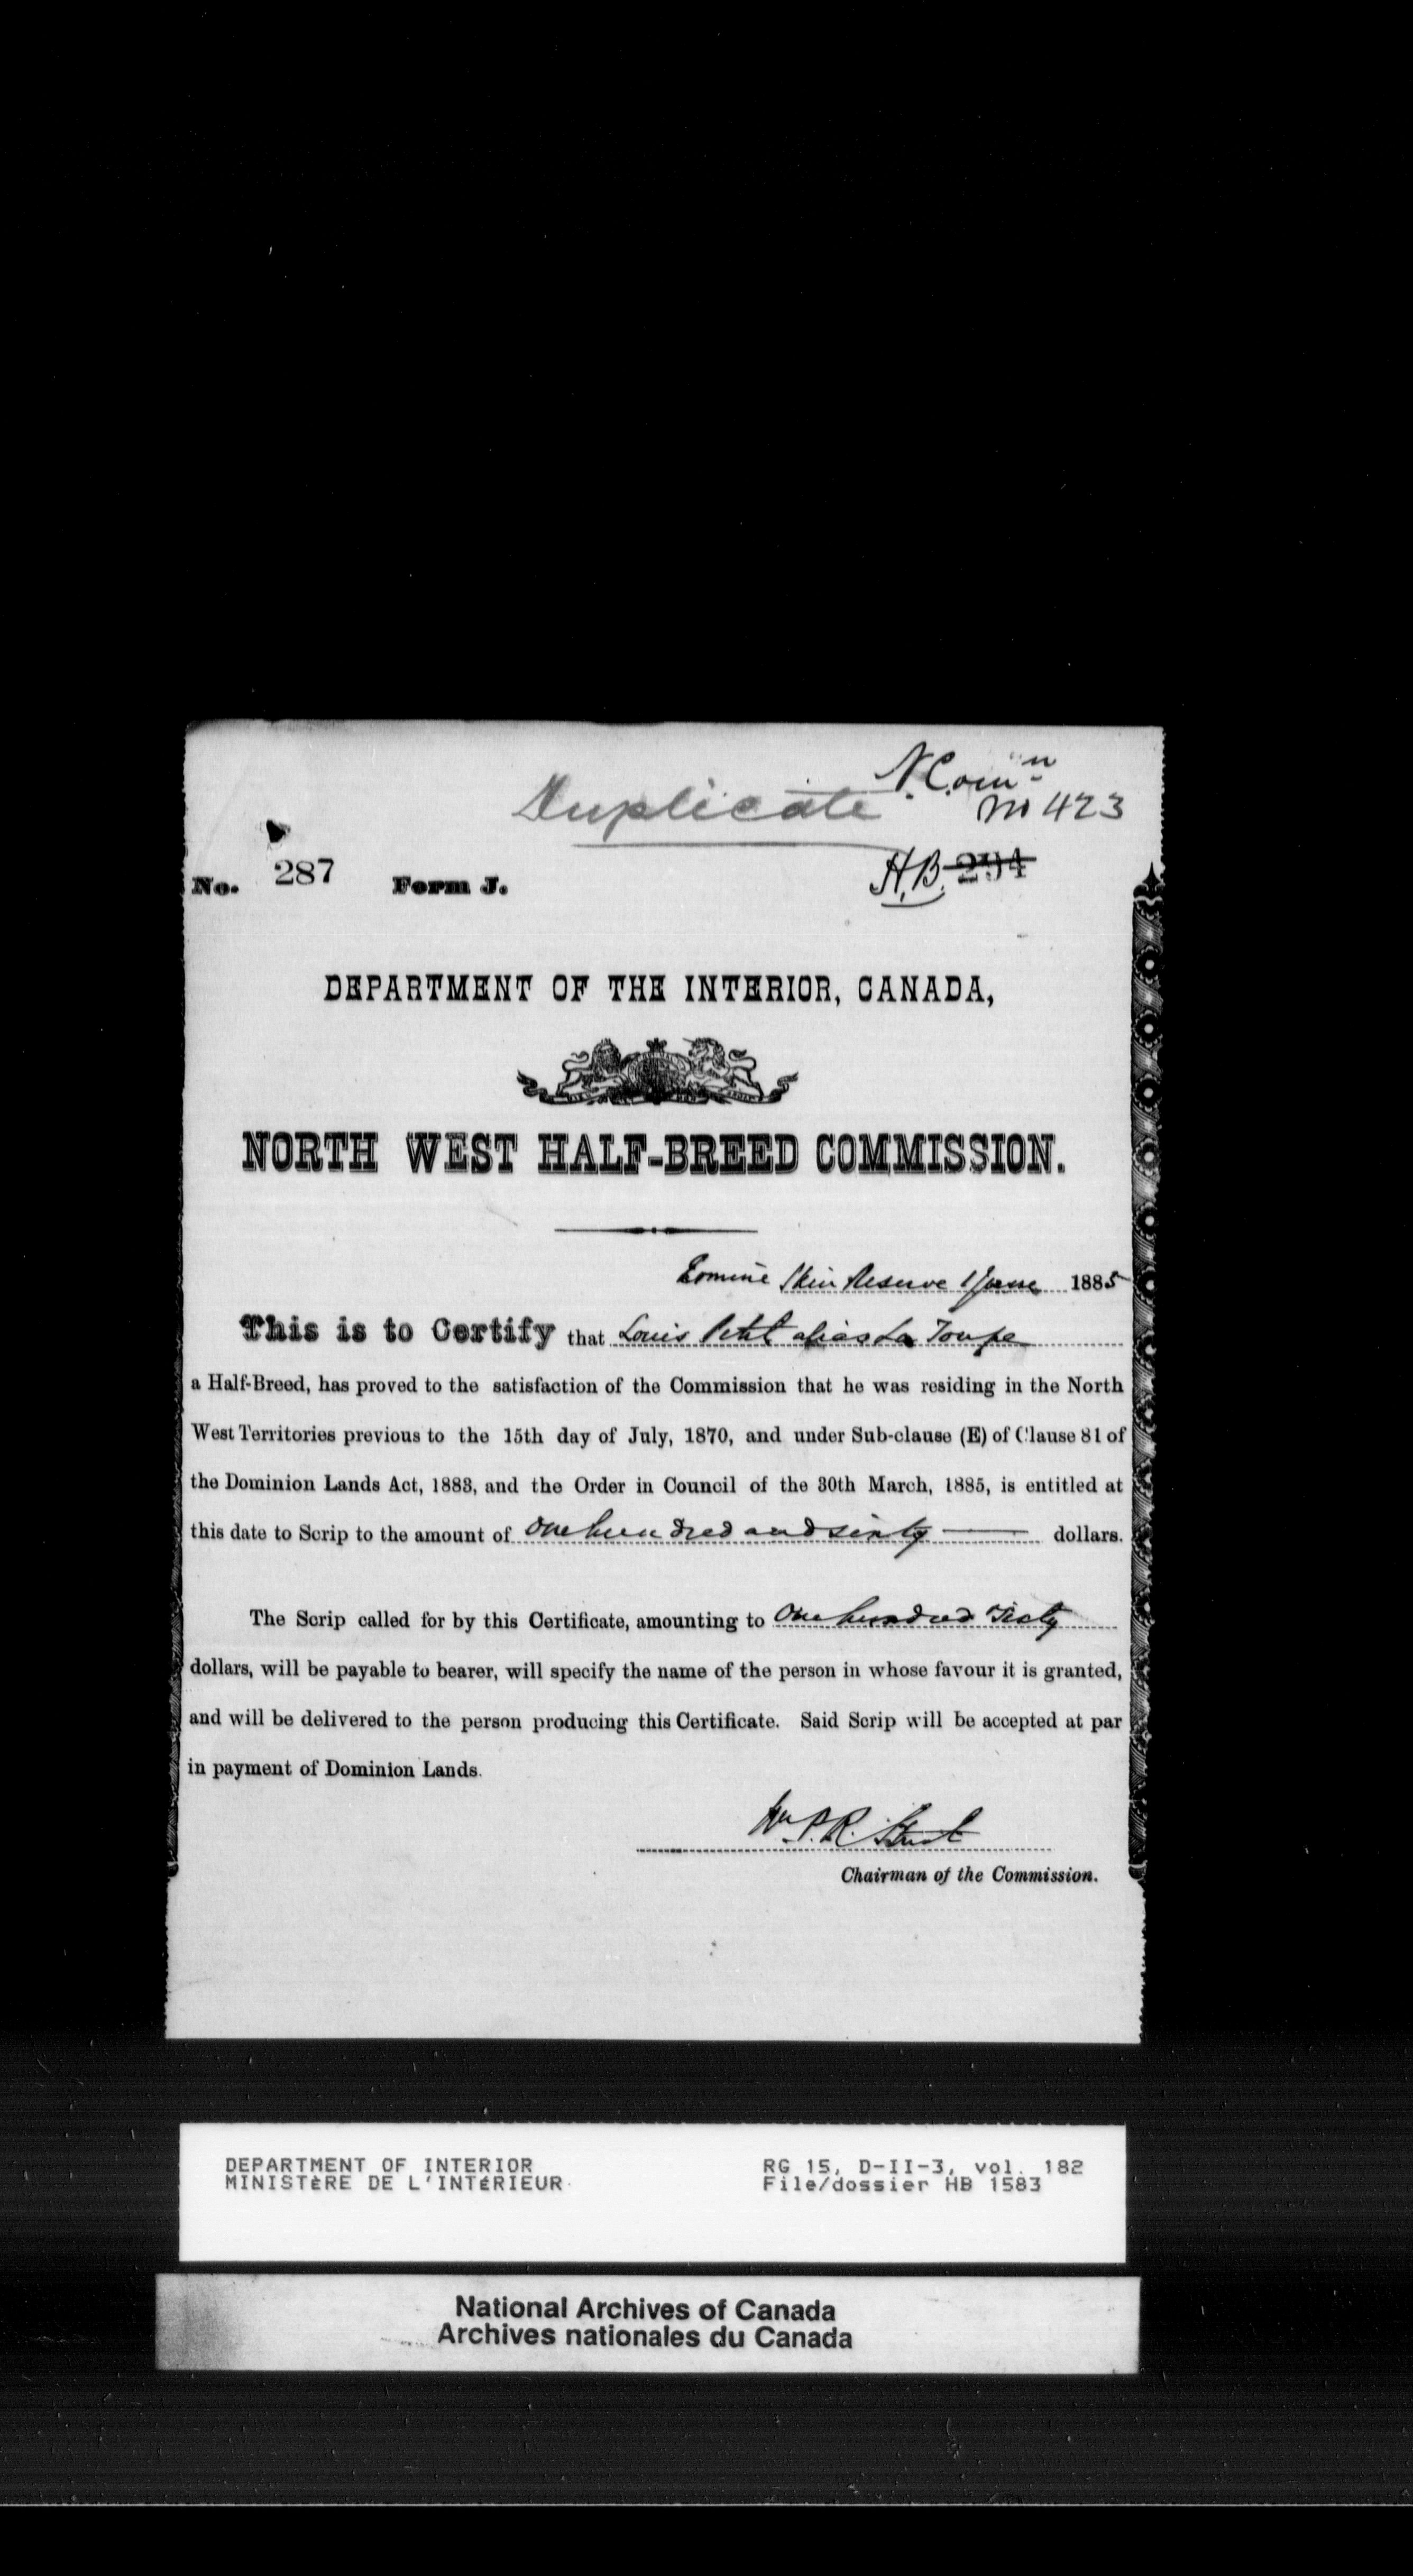 Duplicate
N. Com n
No 423
No. 287 Form J.
H.B. 294
DEPARTMENT OF THE INTERIOR, CANADA,
NORTH WEST HALF-BREED COMMISSION.
Skin Reserve 1 June 1885
This is to Certify that Louis Petit alias La Toupe
a Half-Breed, has proved to the satisfaction of the Commission that he was residing in the North
West Territories previous to the 15th day of July, 1870, and under Sub-clause (E) of Clause 81 of
the Dominion Lands Act, 1883, and the Order in Council of the 30th March, 1885, is entitled at
this date to Scrip to the amount of One hundred and sixty dollars.
The Scrip called for by this Certificate, amounting to One hundred Sixty
dollars, will be payable to bearer, will specify the name of the person in whose favour it is granted,
and will be delivered to the person producing this Certificate. Said Scrip will be accepted at par
in payment of Dominion Lands.
Wm P.R. Street
Chairman of the Commission.
DEPARTMENT OF INTERIOR
MINISTÈRE DE L'INTÉRIEUR
RG 15, D-II-3, vol. 182
File/dossier HB 1583
National Archives of Canada
Archives nationales du Canada